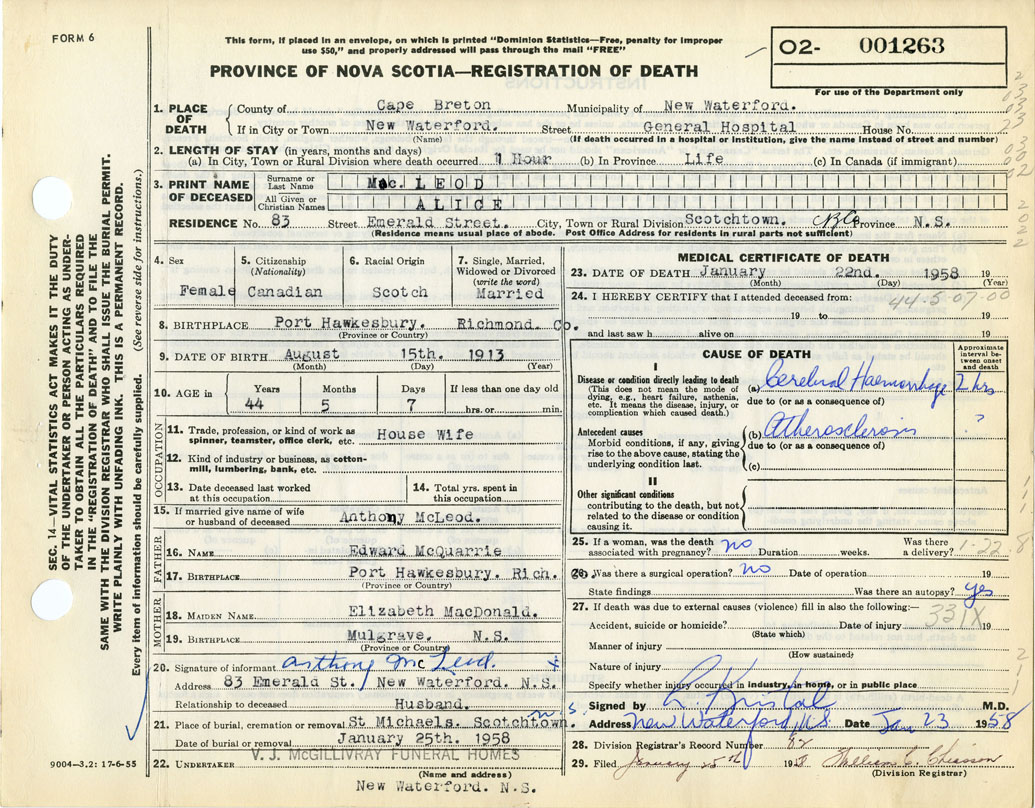 FORM 6
This form, if placed in an envelope, on which is printed "Dominion Statistics—Free, penalty for improper
use $50," and properly addressed will pass through the mail "FREE"
02- 001263
For use of the Department only
PROVINCE OF NOVA SCOTIA—REGISTRATION OF DEATH
1. PLACE OF DEATH
County of Cape Breton Municipality of New Waterford.
If in City or Town New Waterford. Street General Hospital House No.
(Name) (If death occurred in a hospital or institution, give the name instead of street and number)
2. LENGTH OF STAY (in years, months and days)
(a) In City, Town or Rural Division where death occurred 1 Hour (b) In Province Life (c) In Canada (if immigrant)
3. PRINT NAME OF DECEASED
Surname or Last Name Mac. LEOD
All Given or Christian Names ALICE
RESIDENCE No. 83 Street Emerald Street. City, Town or Rural Division Scotchtown. Province N.S.
(Residence means usual place of abode. Post Office Address for residents in rural parts not sufficient)
4. Sex Female
5. Citizenship (Nationality) Canadian
6. Racial Origin Scotch
7. Single, Married, Widowed or Divorced (write the word) Married
8. BIRTHPLACE Port Hawkesbury. Richmond Co.
(Province or Country)
9. DATE OF BIRTH August 15th. 1913
(Month) (Day) (Year)
10. AGE in Years 44 Months 5 Days 7 If less than one day old hrs. or min.
OCCUPATION
11. Trade, profession, or kind of work as spinner, teamster, office clerk, etc. House Wife
12. Kind of industry or business, as cotton-mill, lumbering, bank, etc.
13. Date deceased last worked at this occupation
14. Total yrs. spent in this occupation
15. If married give name of wife or husband of deceased Anthony McLeod.
FATHER
16. NAME Edward McQuarrie
17. BIRTHPLACE Port Hawkesbury. Rich.
(Province or Country)
MOTHER
18. MAIDEN NAME Elizabeth MacDonald.
19. BIRTHPLACE Mulgrave. N.S.
(Province or Country)
20. Signature of informant Anthony McLeod.
Address 83 Emerald St. New Waterford. N.S.
Relationship to deceased Husband.
21. Place of burial, cremation or removal St Michaels. Scotchtown. N.S.
Date of burial or removal January 25th. 1958
22. UNDERTAKER V. J. McGILLIVRAY FUNERAL HOMES
(Name and address)
New Waterford. N.S.
9004—3.2: 17-6-55
MEDICAL CERTIFICATE OF DEATH
23. DATE OF DEATH January 22nd. 1958 19
(Month) (Day) (Year)
24. I HEREBY CERTIFY that I attended deceased from:
44-5-07-00
19 to 19
and last saw h alive on 19
CAUSE OF DEATH
Approximate interval between onset and death
I
Disease or condition directly leading to death
(This does not mean the mode of dying, e.g., heart failure, asthenia, etc. It means the disease, injury, or complication which caused death.)
(a) Cerebral Haemorrhage 2 hrs
due to (or as a consequence of)
Antecedent causes
Morbid conditions, if any, giving rise to the above cause, stating the underlying condition last.
(b) Atherosclerosis ?
due to (or as a consequence of)
(c)
II
Other significant conditions contributing to the death, but not related to the disease or condition causing it.
25. If a woman, was the death associated with pregnancy? no Duration weeks. Was there a delivery?
1-22-8
26. Was there a surgical operation? no Date of operation 19
State findings Was there an autopsy? yes
27. If death was due to external causes (violence) fill in also the following:—
331X
Accident, suicide or homicide? Date of injury 19
(State which)
Manner of injury
(How sustained)
Nature of injury
Specify whether injury occurred in industry, in home, or in public place
Signed by L. Kristal M.D.
Address New Waterford, N.S. Date Jan 23 1958
28. Division Registrar's Record Number
29. Filed January 25th 1958 William C. Chiasson
(Division Registrar)
SEC. 14—VITAL STATISTICS ACT MAKES IT THE DUTY
OF THE UNDERTAKER OR PERSON ACTING AS UNDER-
TAKER TO OBTAIN ALL THE PARTICULARS REQUIRED
IN THE "REGISTRATION OF DEATH" AND TO FILE THE
SAME WITH THE DIVISION REGISTRAR WHO SHALL ISSUE THE BURIAL PERMIT.
WRITE PLAINLY WITH UNFADING INK. THIS IS A PERMANENT RECORD.
Every item of information should be carefully supplied. (See reverse side for instructions.)